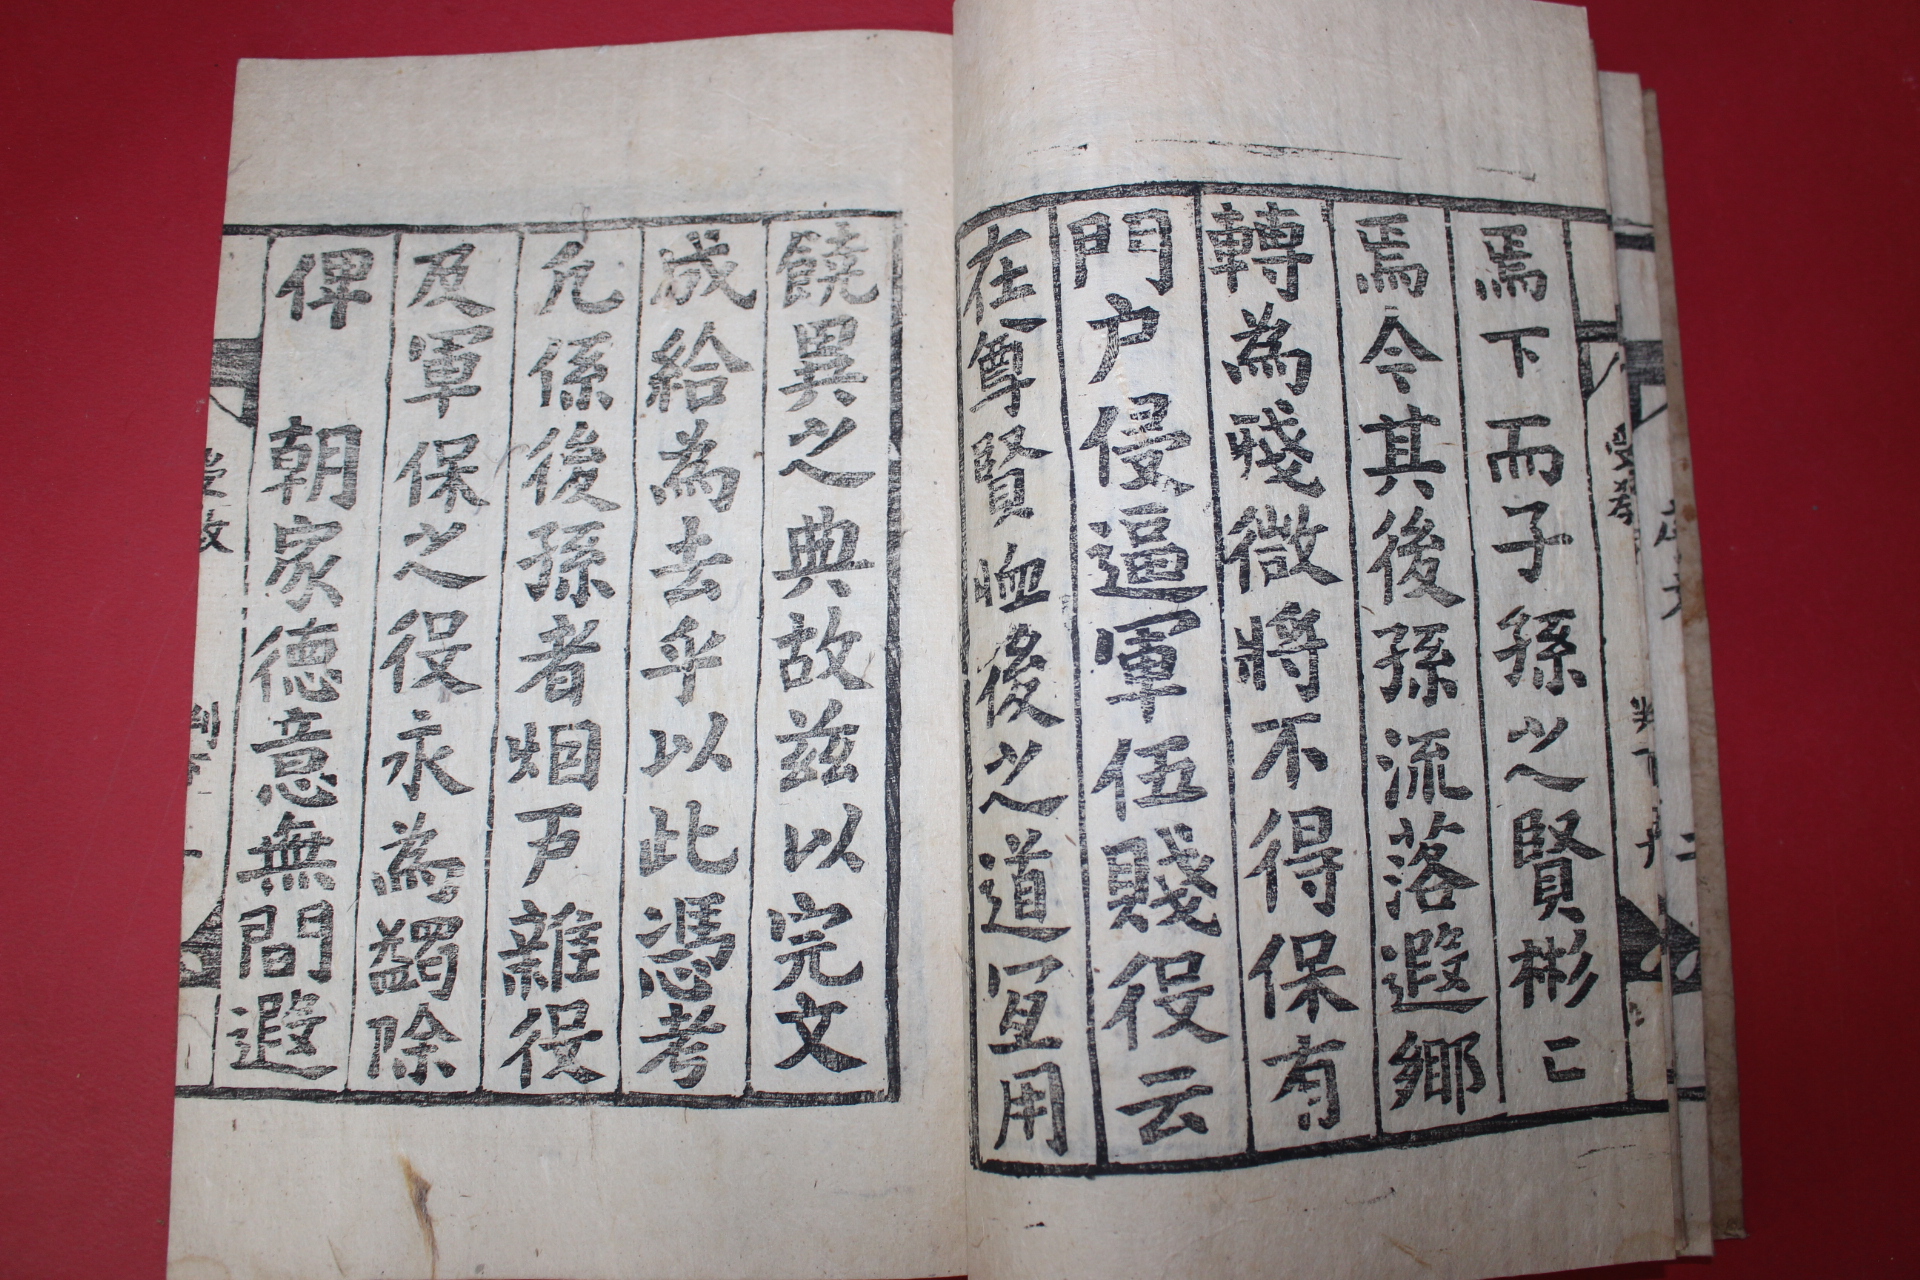 焉下而子孫之賢彬〻
焉今其後孫流落遐鄉
轉為殘微將不得保有
門户侵逼軍伍賤役云
在尊賢恤後之道冝用
饒異之典故玆以完文
成給為去乎以此憑考
凡係後孫者烟戶雜役
及軍保之役永為蠲除
俾 朝家德意無間遐